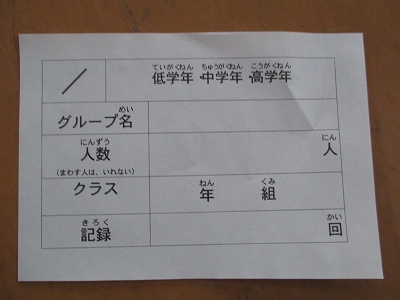 ていがくねん ちゅうがくねん こうがくねん
／ 低学年・中学年・高学年
めい
グループ名
にんずう にん
人数 人
(まわす人は、いれない)
ねん くみ
クラス 年 組
きろく かい
記録 回